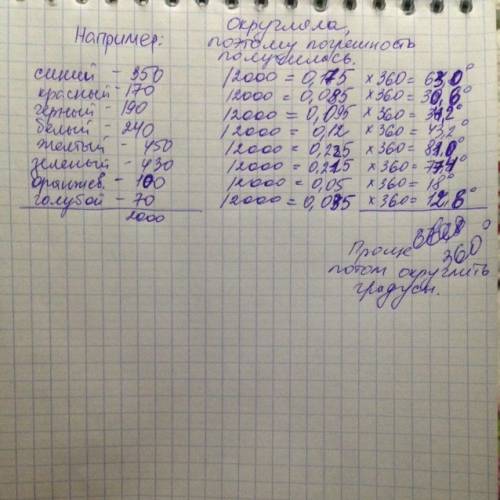 Например:
Округляла,
поэтому погрешность
получилась.
синий - 350 /2000 = 0,175 ×360 = 63,0°
красный - 170 /2000 = 0,085 ×360 = 30,6°
черный - 190 /2000 = 0,095 ×360 = 34,2°
белый - 240 /2000 = 0,12 ×360 = 43,2°
желтый - 450 /2000 = 0,225 ×360 = 81,0°
зеленый - 430 /2000 = 0,215 ×360 = 77,4°
оранжев. - 100 /2000 = 0,05 ×360 = 18°
голубой - 70 /2000 = 0,035 ×360 = 12,6°
2000
360°
Проще
потом округлить
градусы.